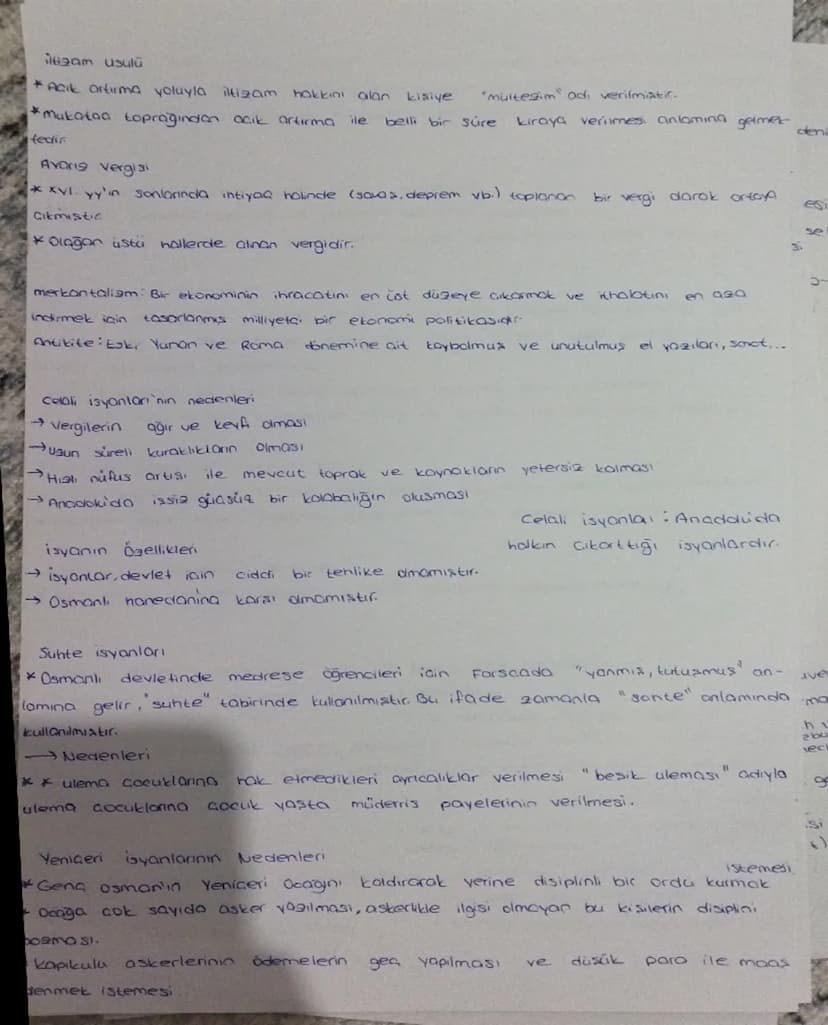 iltizam usulü
* Açık artırma yoluyla iltizam hakkını alan kişiye "mültezim" adı verilmiştir.
* mukataa toprağından açık artırma ile belli bir süre kiraya verilmesi anlamına gelmek-
tedir.
Avarız vergisi
* XVI. yy'ın sonlarında ihtiyaç halinde (savaş, deprem vb.) toplanan bir vergi olarak ortaya
çıkmıştır
* Olağan üstü hallerde alınan vergidir.
merkantalizm: Bir ekonominin ihracatını en üst düzeye çıkarmak ve ithalatını en aza
indirmek için tasarlanmış milliyetçi bir ekonomi politikasıdır.
Antikite: Eski Yunan ve Roma dönemine ait kaybolmuş ve unutulmuş el yazıları, sanat...
Celali isyanları'nın nedenleri
→ Vergilerin ağır ve keyfi olması
→ uzun süreli kuraklıkların olması
→ Hızlı nüfus artışı ile mevcut toprak ve kaynakların yetersiz kalması
→ Anadolu'da işsiz güçsüz bir kalabalığın oluşması
Celali isyanları: Anadolu'da
halkın çıkarttığı isyanlardır.
İsyanın Özellikleri
→ isyanlar, devlet için ciddi bir tehlike olmamıştır.
→ Osmanlı hanedanına karşı olmamıştır.
Suhte isyanları
* Osmanlı devletinde medrese öğrencileri için Farsçada "yanmış, tutuşmuş" an-
lamına gelir, "suhte" tabirinde kullanılmıştır. Bu ifade zamanla "softe" anlamında
kullanılmıştır.
→ Nedenleri
* * ulema çocuklarına hak etmedikleri ayrıcalıklar verilmesi "beşik uleması" adıyla
ulema çocuklarına çocuk yaşta müderris payelerinin verilmesi.
Yeniçeri isyanlarının Nedenleri
istemesi
* Genç osman'ın Yeniçeri Ocağını kaldırarak yerine disiplinli bir ordu kurmak
* Ocağa çok sayıda asker yazılması, askerlikle ilgisi olmayan bu kişilerin disiplini
bozması.
kapıkulu askerlerinin ödemelerin geç yapılması ve düşük para ile maaş
denmek istemesi